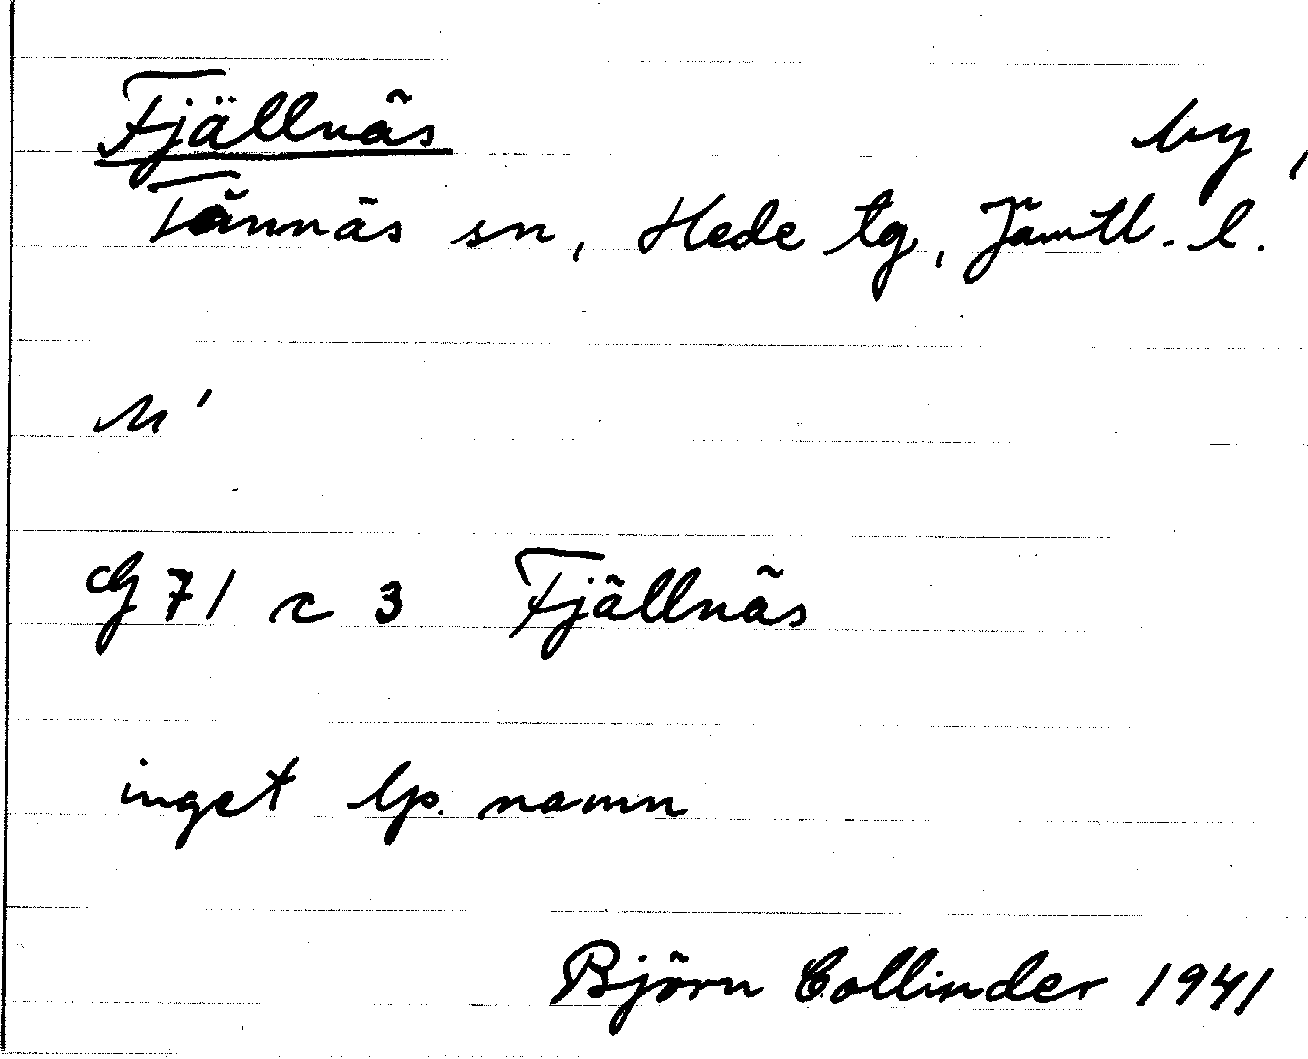 Fjällnäs by,
Tännäs sn, Hede tg, Jämtl. l.
G 71 c 3 Fjällnäs
inget lp. namn
Björn Collinder 1941